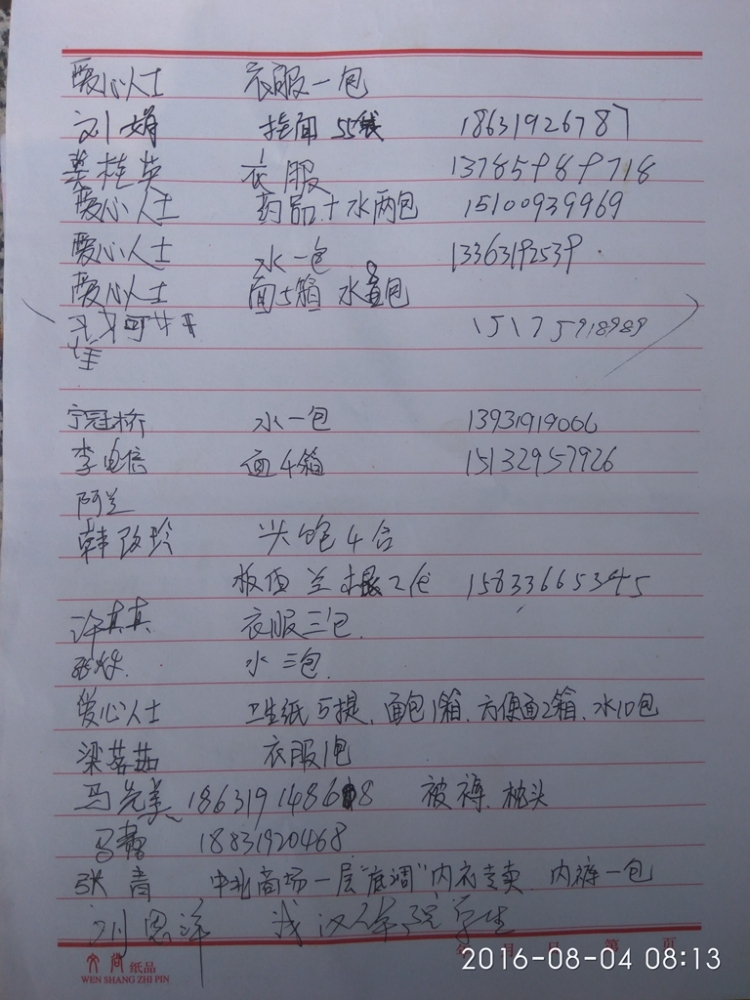 爱心人士 衣服一包
刘娟 挂面55袋 18631926787
桂英 衣服 13785989718
爱心人士 药品+水两包 15100939969
爱心人士 水一包 13363192539
爱心人士 面5箱 水8包
15175918989
宁冠桥 水一包 13931919066
李电信 面4箱 15132957926
阿兰
韩改珍 头饱4合
板兰根2包 15833665345
许真真 衣服三包.
水三包.
爱心人士 卫生纸5提、面包1箱、方便面2箱、水10包
梁茹 衣服1包
马先美 18631914868 被褥、枕头
马 18831920468
张青 中北商场一层"底调"内衣专卖、内裤一包
刘恩泽 武汉体院学生
年 月 日 第 页
文尚纸品
WEN SHANG ZHI PIN
2016-08-04 08:13